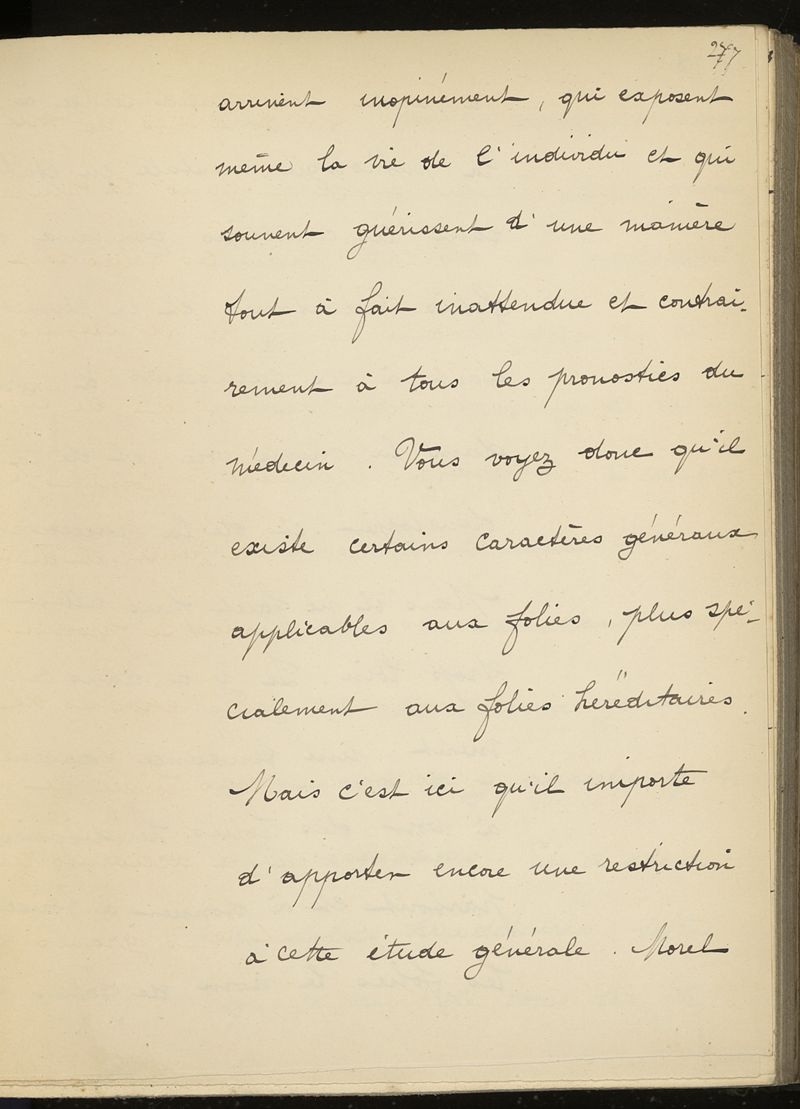 277
arrivent inopinément, qui exposent
même la vie de l'individu et qui
souvent guérissent d'une manière
tout à fait inattendue et contrai-
rement à tous les pronostics du
médecin. Vous voyez donc qu'il
existe certains caractères généraux
applicables aux folies, plus spé-
cialement aux folies héréditaires.
Mais c'est ici qu'il importe
d'apporter encore une restriction
à cette étude générale. Morel